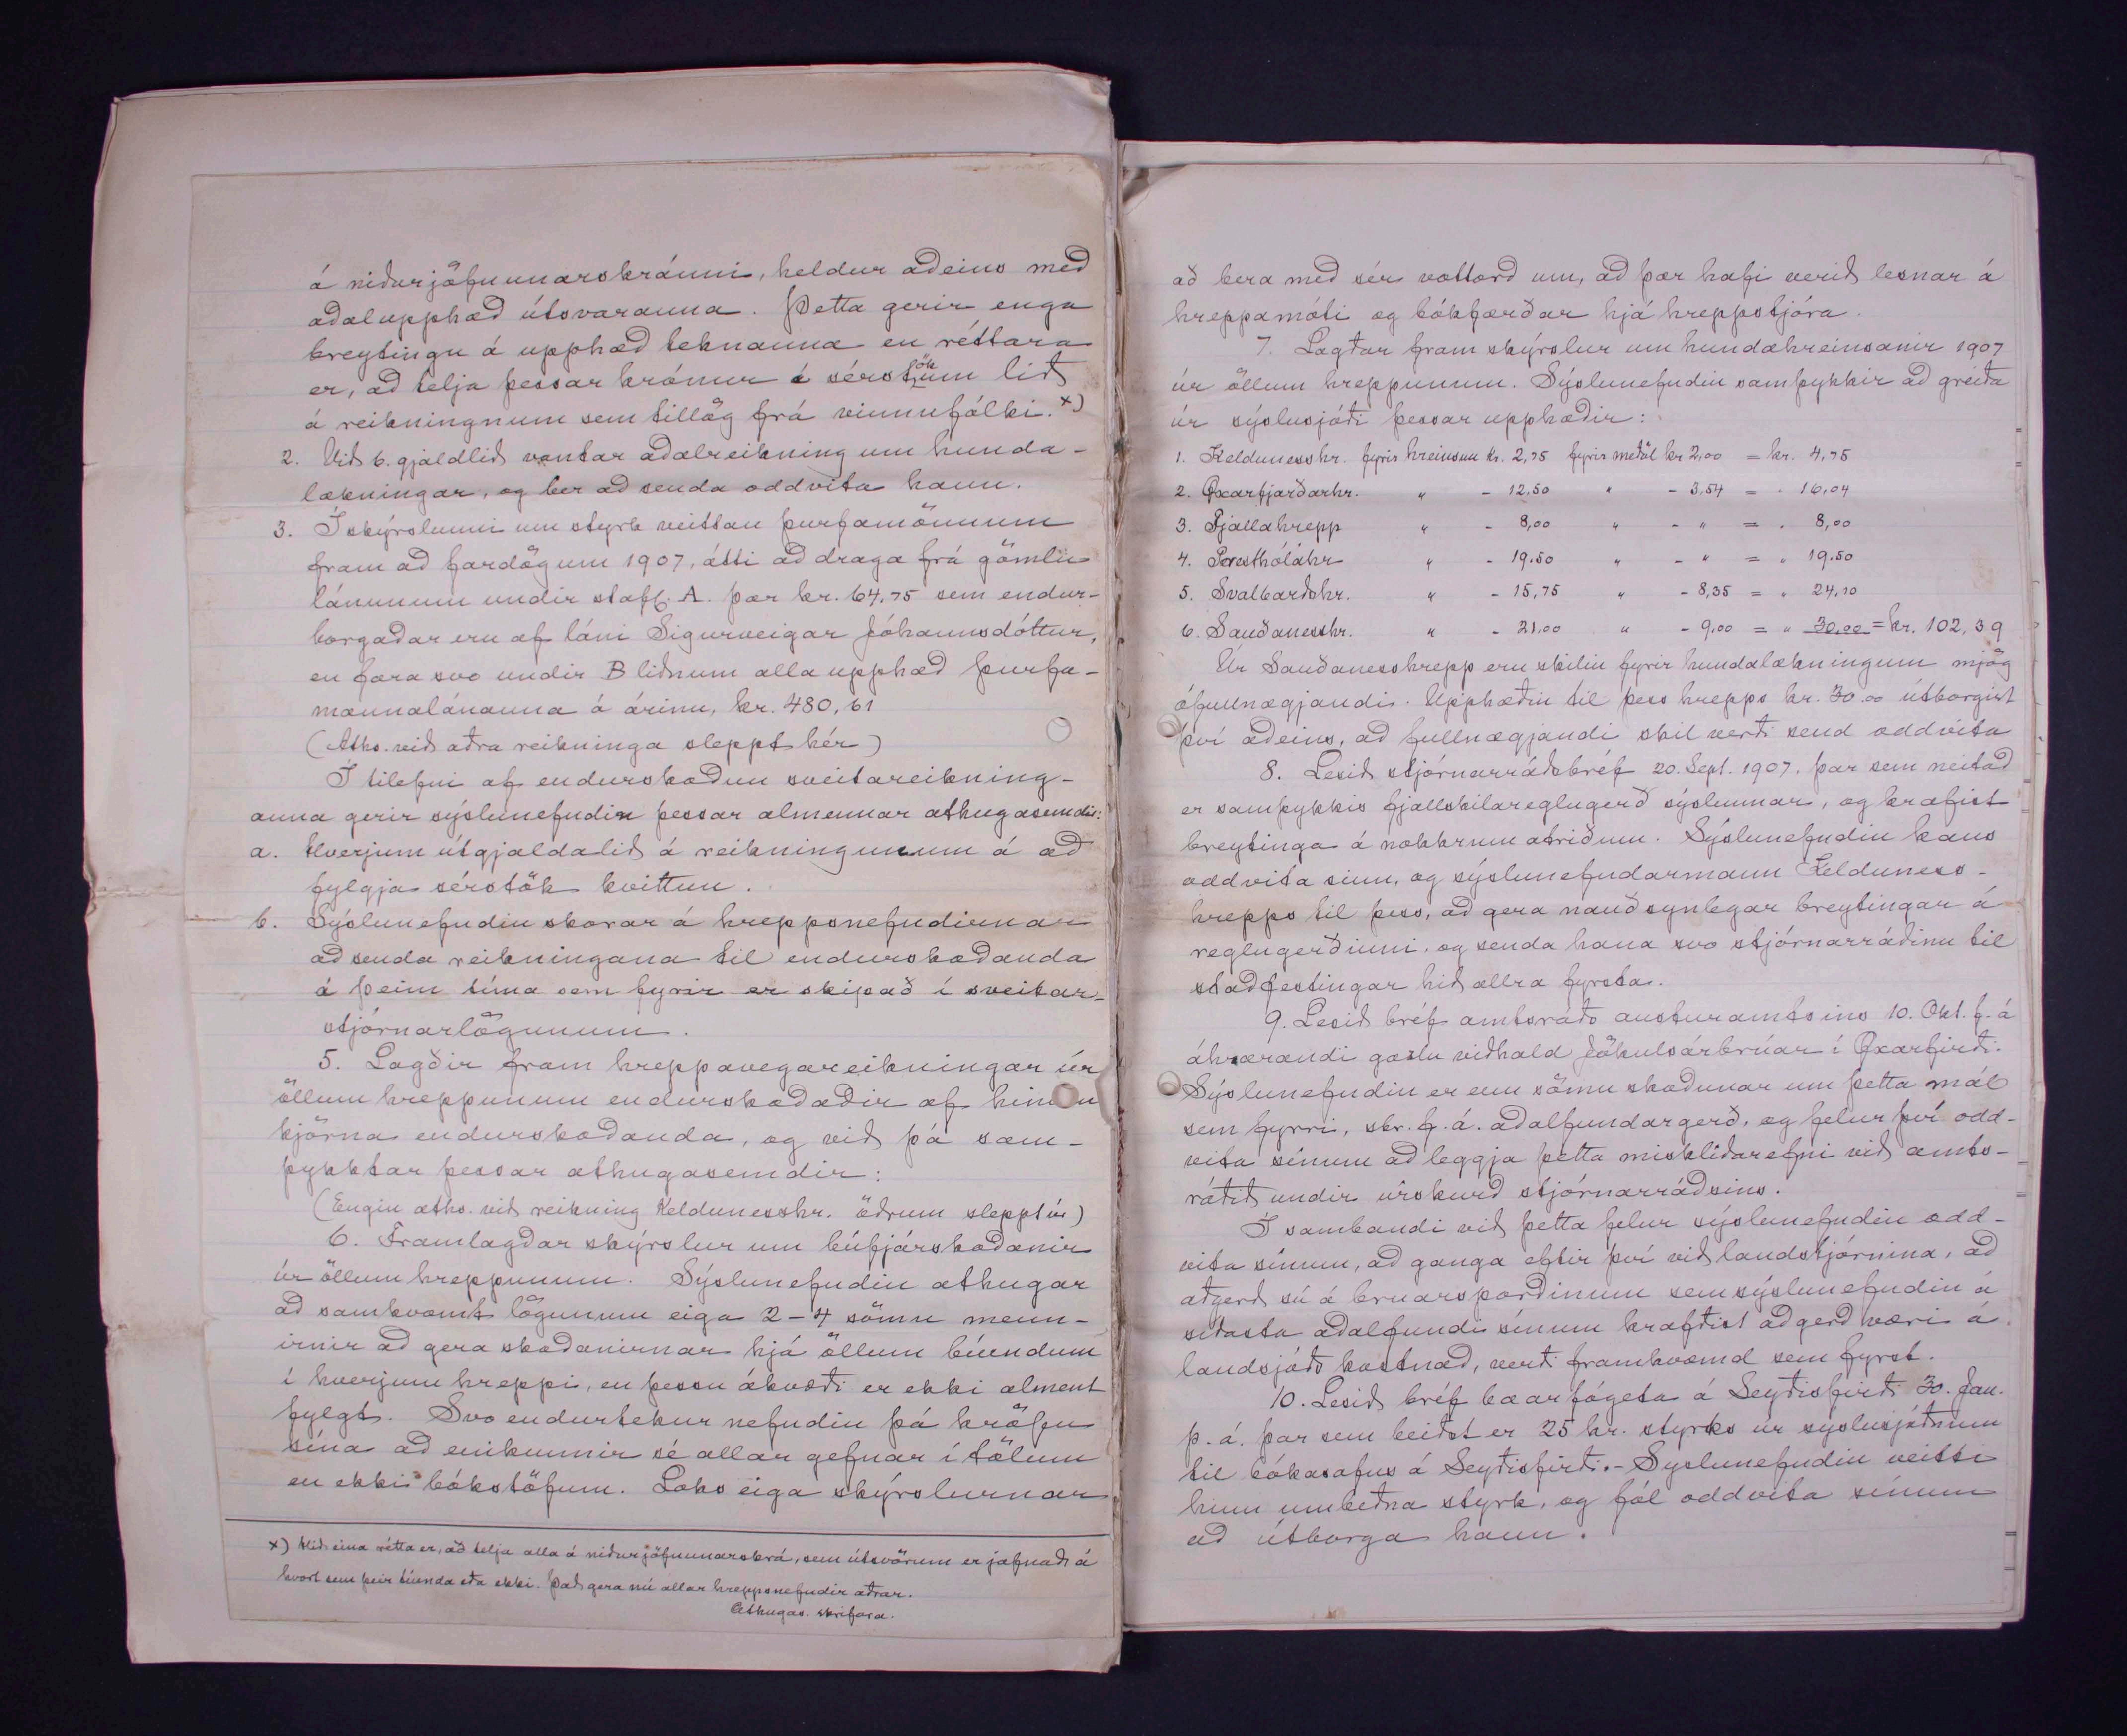 á niðurjöfnunarskránni, heldur aðeins með
aðalupphæð útsvaranna. Þetta gerir enga
breytingu á upphæð teknanna en réttara
er, að telja þessar krónur á sérstökum lið
á reikningnum sem tillög frá vinnufólki. x)
2. Við 6. gjaldlið vantar aðalreikning um hunda-
lækningar, og ber að senda oddvita hann.
3. Í skýrslunni um styrk veittan þurfamönnum
fram að fardögum 1907, átti að draga frá gömlu
lánunum undir stafl. A. þær kr. 64,75 sem endur-
borgaðar eru af láni Sigurveigar Jóhannsdóttur,
en færa svo undir B liðnum alla upphæð þurfa-
mannalánanna á árinu, kr. 480,61
(Aths. við aðra reikninga sleppt hér)
Í tilefni af endurskoðun sveitareikning-
anna gerir sýslunefndin þessar almennar athugasemdir:
a. Hverjum útgjaldalið á reikningunum á að
fylgja sérstök kvittun.
b. Sýslunefndin skorar á hreppsnefndirnar
að senda reikningana til endurskoðanda
á þeim tíma sem fyrir er skipað í sveitar-
stjórnarlögunum.
5. Lagðir fram hreppavegareikningar úr
öllum hreppunum endurskoðaðir af hinum
kjörna endurskoðanda, og við þá sam-
þykktar þessar athugasemdir:
(Engin aths. við reikning Kelduneshr. öðrum sleppt úr)
6. Framlagðar skýrslur um búfjárskoðanir
úr öllum hreppunum. Sýslunefndin athugar
að samkvæmt lögunum eiga 2-4 sömu menn-
irnir að gera skoðanirnar hjá öllum búendum
í hverjum hreppi, en þessu ákvæði er ekki alment
fylgt. Svo endurtekur nefndin þá kröfu
sína að einkunnir sé allar gefnar í tölum
en ekki bókstöfum. Loks eiga skýrslurnar
x) Hið eina rétta er, að telja alla á niðurjöfnunarskrá, sem útsvörum er jafnað á
hvort sem þeir tíunda eða ekki. Það gera nú allar hreppsnefndir aðrar.
Athugas. skrifara.
að bera með sér vottorð um, að þær hafi verið lesnar á
hreppamóti og bókfærðar hjá hreppstjóra.
7. Lagðar fram skýrslur um hundahreinsanir 1907
úr öllum hreppunum. Sýslunefndin samþykkir að greiða
úr sýslusjóði þessar upphæðir:
1. Kelduness hr. fyrir hreinsun kr. 2,75 fyrir meðöl kr 2,00 = kr. 4,75
2. Öxarfjarðarhr. " - 12,50 " - 3,54 = " 16,04
3. Fjallahrepp " - 8,00 " - " = " 8,00
4. Presthólahr " - 19.50 " - " = " 19.50
5. Svalbarðshr. " - 15,75 " - 8,35 = " 24,10
6. Sauðanesshr. " - 21,00 " - 9,00 = " 30,00 = kr. 102,39
Úr Sauðaness hrepp eru skilin fyrir hundalækningum mjög
ófullnægjandi. Upphæðin til þess hrepps kr. 30.00 útborgist
því aðeins, að fullnægjandi skil verði send oddvita
8. Lesið stjórnarráðsbréf 20. Sept. 1907. þar sem neitað
er samþykkis fjallskilareglugerð sýslunnar, og krafist
breytinga á nokkrum atriðum. Sýslunefndin kaus
oddvita sinn, og sýslunefndarmann Kelduness-
hrepps til þess, að gera nauðsynlegar breytingar á
reglugerðinni, og senda hana svo stjórnarráðinu til
staðfestingar hið allra fyrsta.
9. Lesið bréf amtsráðs austuramtsins 10. Okt. f. á
áhrærandi gæslu viðhald Jökulsárbrúar í Öxarfirði.
Sýslunefndin er enn sömu skoðunar um þetta mál
sem fyrri, sbr. f. á. aðalfundargerð, og felur því odd-
vita sínum að leggja þetta misklíðarefni við amts-
ráðið undir úrskurð stjórnarráðsins.
Í sambandi við þetta felur sýslunefndin odd-
vita sínum, að ganga eftir því við landstjórnina, að
aðgerð sú á brúarsporðinum sem sýslunefndin á
síðasta aðalfundi sínum krafðist að gerð væri á
landsjóðs kostnað, verði framkvæmd sem fyrst.
10. Lesið bréf bæarfógeta á Seyðisfirði 30. Jan.
þ. á. þar sem beiðst er 25 kr. styrks úr sýslusjóðnum
til bókasafns á Seyðisfirði. - Sýslunefndin veitti
hinn umbeðna styrk, og fól oddvita sínum
að útborga hann.